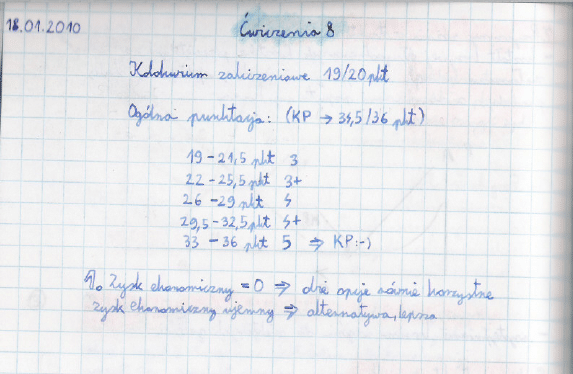 18.01.2010
Ćwiczenia 8
Kolokwium zaliczeniowe 19/20 pkt
Ogólna punktacja: (KP → 34,5/36 pkt)
19 - 21,5 pkt 3
22 - 25,5 pkt 3+
26 - 29 pkt 4
29,5 - 32,5 pkt 4+
33 - 36 pkt 5 ⇒ KP:-)
Zysk ekonomiczny = 0 ⇒ dwie opcje równie korzystne
Zysk ekonomiczny ujemny ⇒ alternatywa lepsza